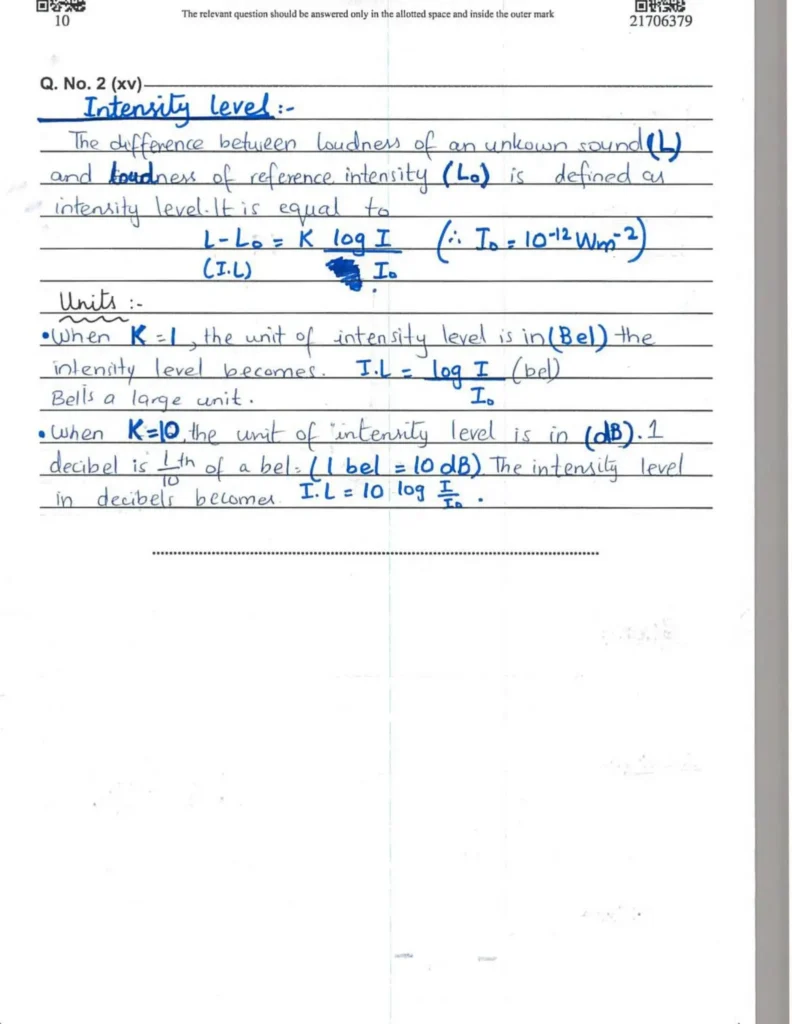 The relevant question should be answered only in the allotted space and inside the outer mark
10
21706379
Q. No. 2 (xv)
Intensity level :-
The difference between loudness of an unkown sound (L)
and loudness of reference intensity (L₀) is defined as
intensity level. It is equal to
L - L₀ = K log I/I₀ (∴ I₀ = 10⁻¹² Wm⁻²)
(I.L)
Units :-
• When K = 1, the unit of intensity level is in (Bel) the
intensity level becomes. I.L = log I/I₀ (bel)
Bel is a large unit.
• When K=10, the unit of intensity level is in (dB). 1
decibel is 1/10 th of a bel. (1 bel = 10 dB) The intensity level
in decibels becomes I.L = 10 log I/I₀ .